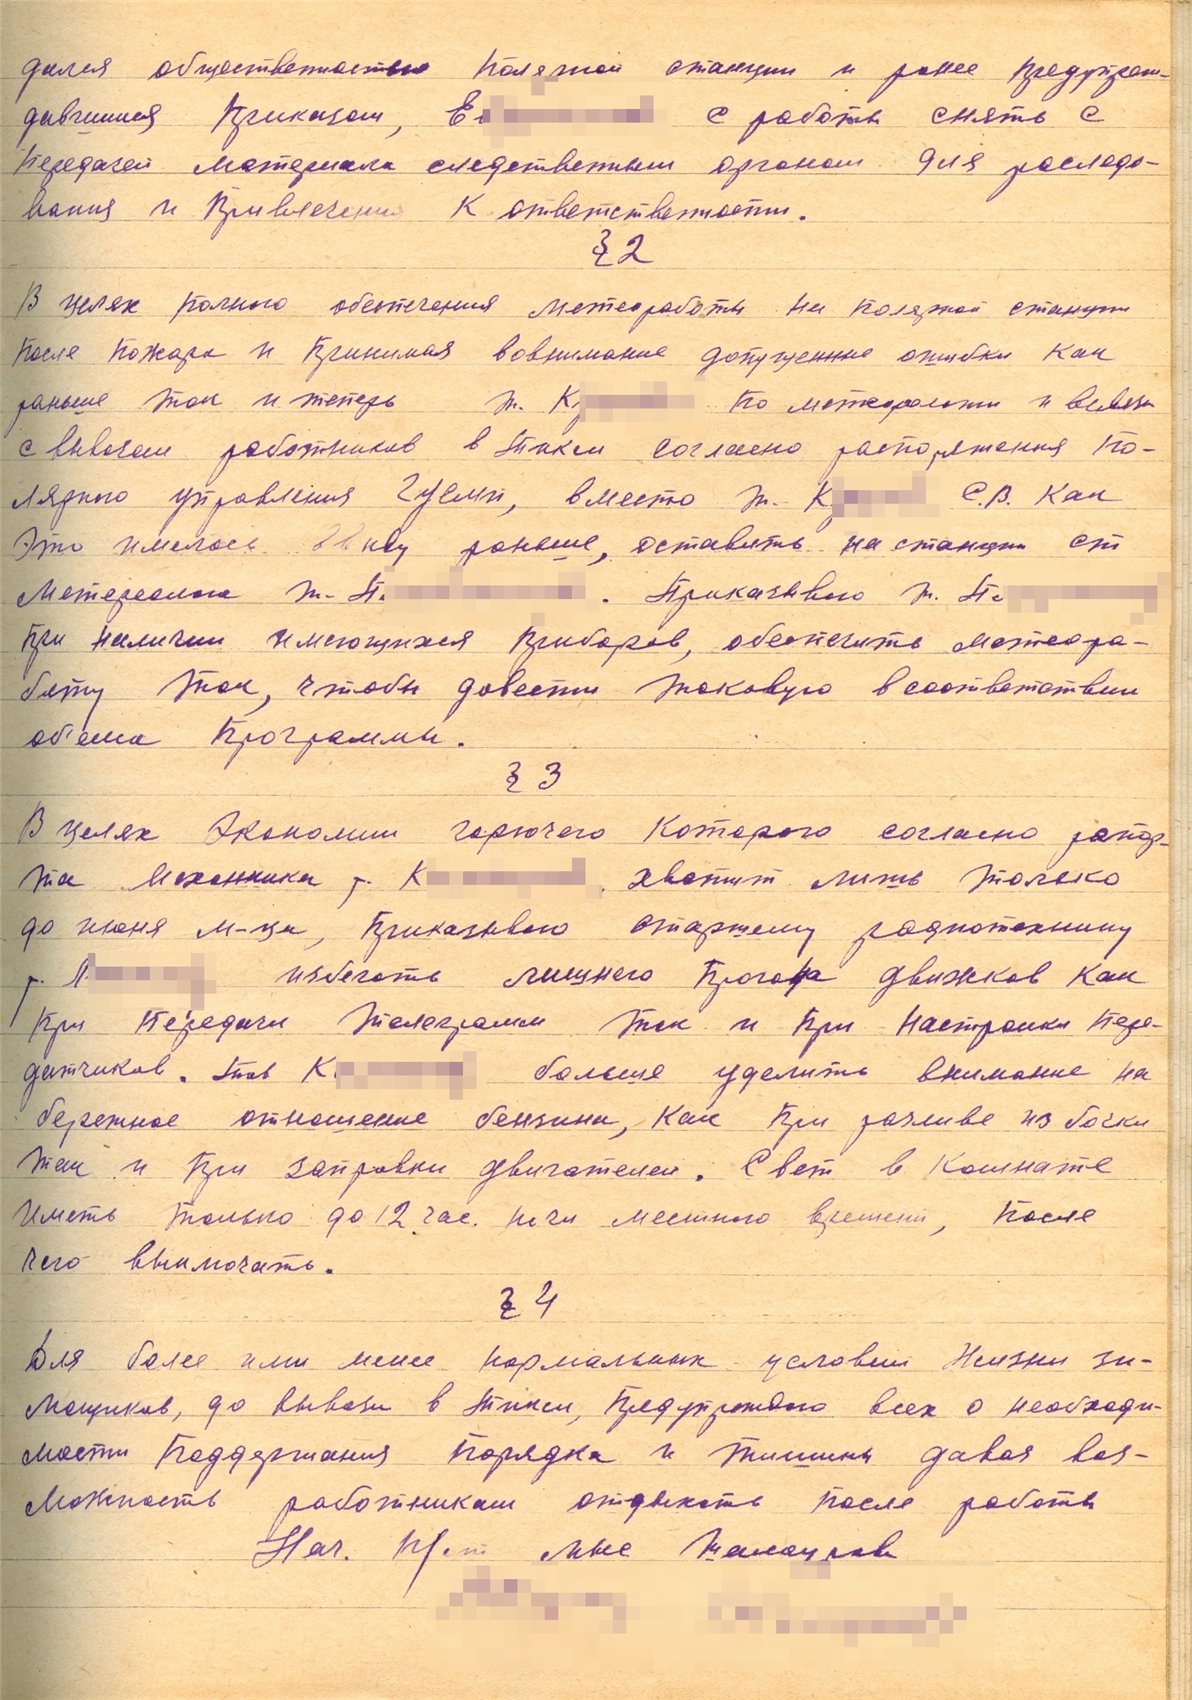 дился общественностью Полярной станции и ранее предупреж-
давшийся Приказом, Е с работы снять с
передачей материала следственным органам для расследо-
вания и Привлечения к ответственности.
§ 2
В целях полного обеспечения метеоработы на полярной станции
после пожара и Принимая вовнимание допущенные ошибки как
раньше так и теперь т. К по метеорологии и в связи
с вывозом работников в Тикси согласно распоряжения По-
лярного управления ГУСМП, вместо т. К С.В. как
это имелось ввиду раньше, оставить на станции ст
Метеролога т. П. Приказываю т. П
При наличии имеющихся Приборов, обеспечить метеора-
боту так, чтобы довести таковую в соответствии
об'ема Программы.
§ 3
В целях Экономии горючего которого согласно рапор-
та Механника т. К хватит лишь только
до июня м-ца, Приказываю старшему радиотехнику
т. Л избегать лишнего Прогона движков как
При Передачи телеграмм так и При Настройки Пере-
датчиков. Тов К больше уделить внимание на
бережное отношение бензина, как При разливе из бочки
так и При заправки двигателей. Свет в комнате
иметь только до 12 час. ночи местного времени, после
чего выключать.
§ 4
Для более или менее нормальных условий Жизни зи-
мовщиков, до вывоза в Тикси, Предупреждаю всех о необходи-
мости Поддержания Порядка и тишины давая воз-
можность работникам отдыхать после работы
Нач. П/ст мыс